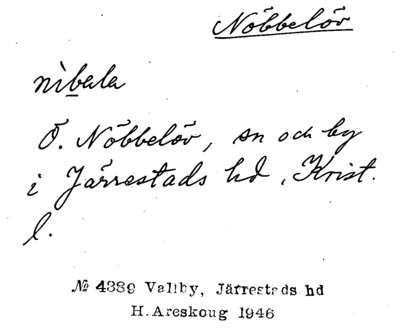 Nöbbelöv
nìbala
Ö. Nöbbelöv, sn och by
i Järrestads hd, Krist.
l.
№ 4389 Vallby, Järrestads hd
H. Areskoug 1946